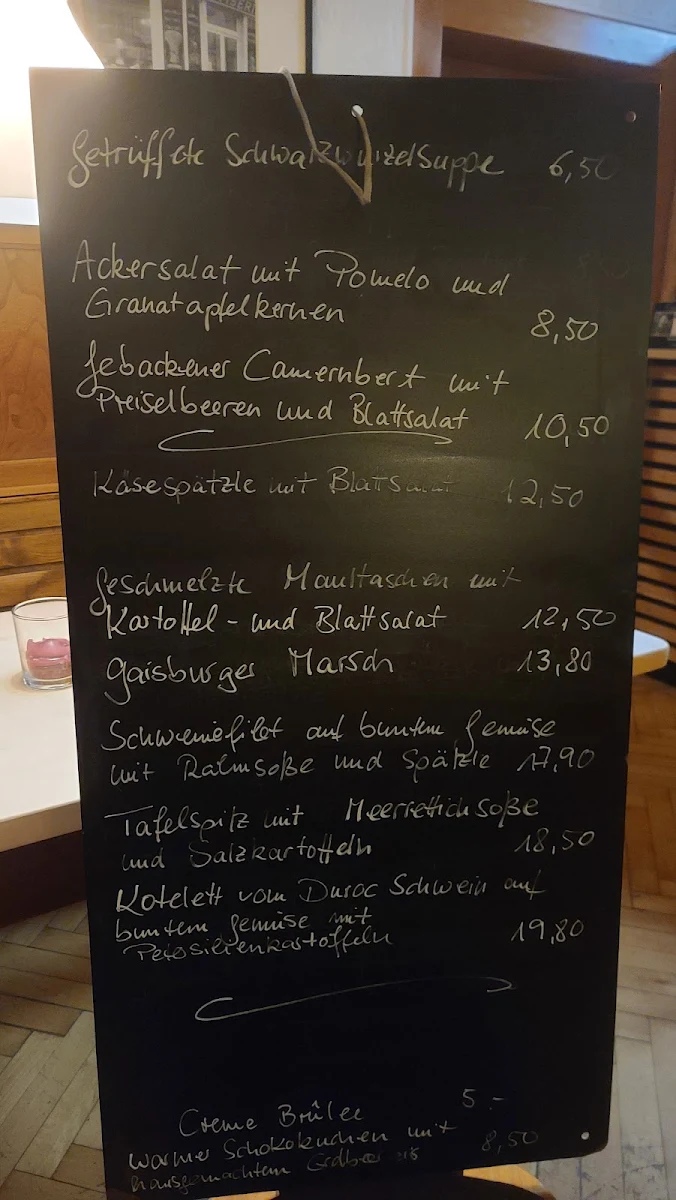 Getrüffelte Schwarzwurzelsuppe 6,50
Ackersalat mit Pomelo und
Granatapfelkernen 8,50
Gebackener Camembert mit
Preiselbeeren und Blattsalat 10,50
Käsespätzle mit Blattsalat 12,50
Geschmelzte Maultaschen mit
Kartoffel- und Blattsalat 12,50
Gaisburger Marsch 13,80
Schweinefilet auf buntem Gemüse
mit Rahmsoße und Spätzle 17,90
Tafelspitz mit Meerrettichsoße
und Salzkartoffeln 18,50
Kotelett vom Duroc Schwein auf
buntem Gemüse mit
Petersilienkartoffeln 19,80
Creme Brûlee 5.-
warmer Schokokuchen mit 8,50
hausgemachtem Erdbeereis